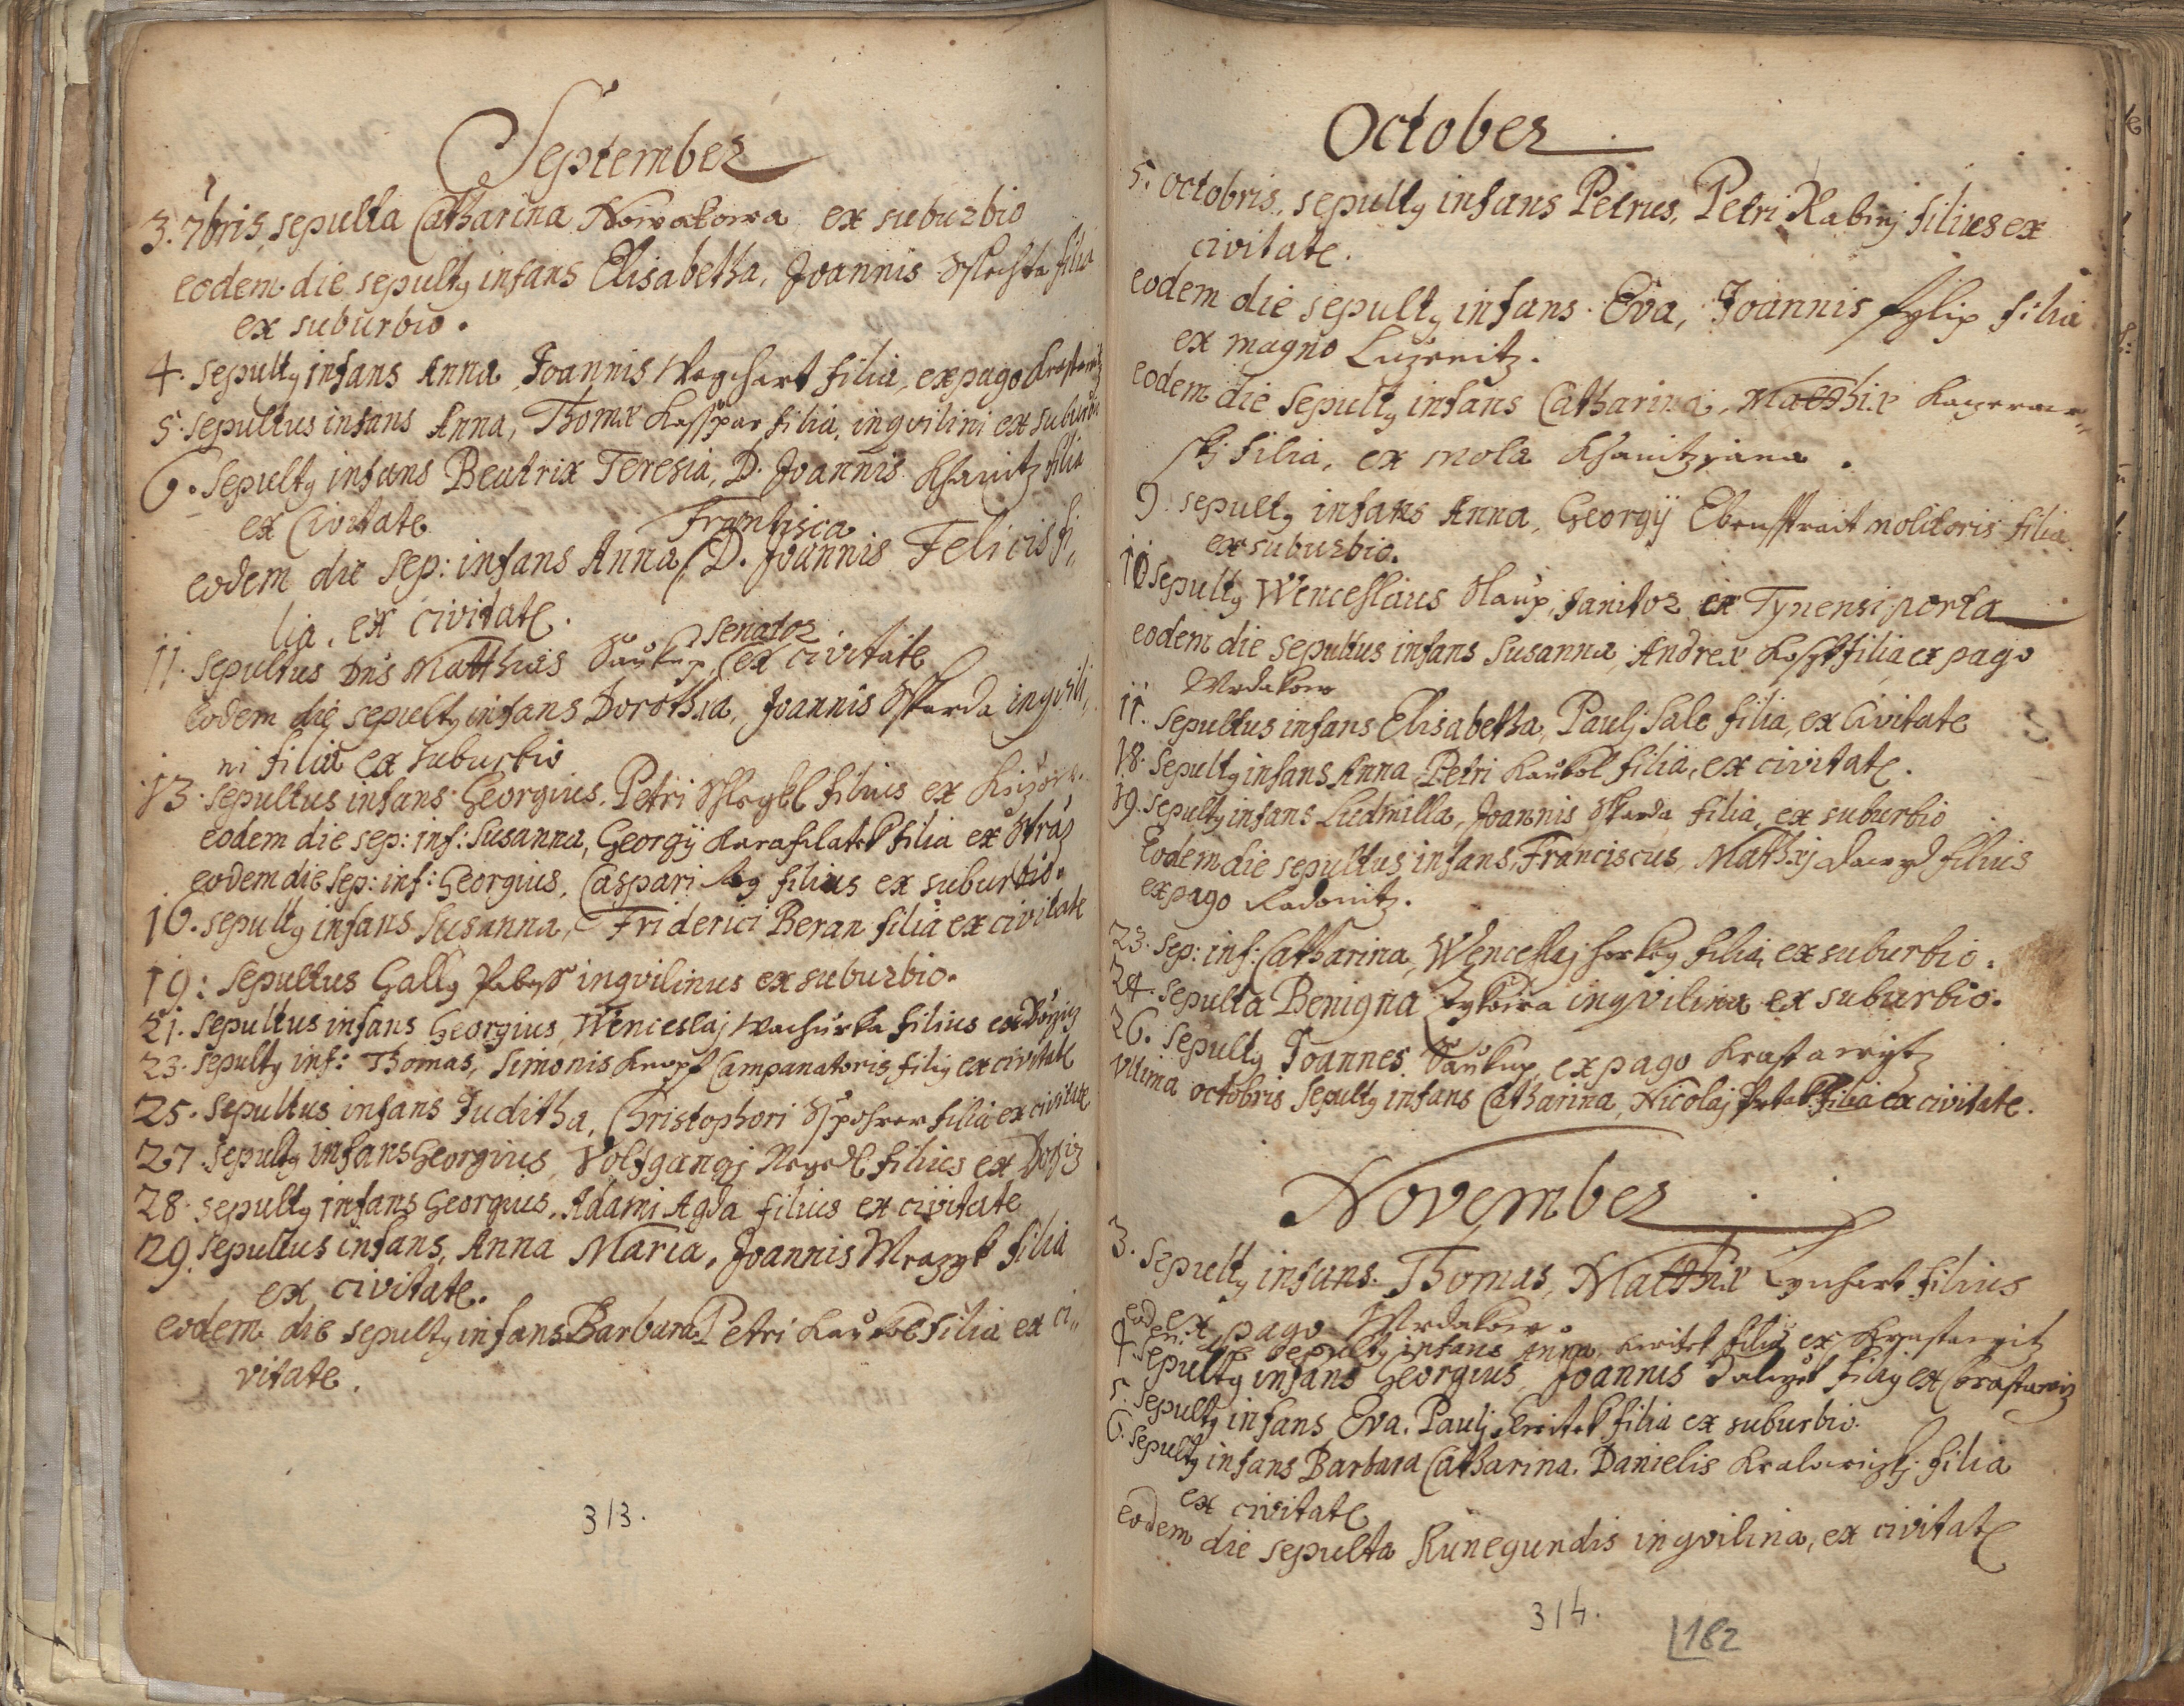 September
3. 7bris sepulta Catharina Nowakowa ex suburbio
eodem die sepulty infans Elisabetha, Joannis filia
ex suburbio.
4. sepulty infans Anna Joannis filia, ex pago
5. sepultus infans Anna, Thomæ Kasspar filia, inqvilini ex suburbio
6. Sepulty infans Beatrix Teresia, D. Joannis Khanitz filia
ex Civitate
Frantisca
eodem die sep: infans Anna, D. Joannis Felicis fi„
lia, ex civitate.
senator
11. sepultus Dns Matthæus Saukup, ex civitate
eodem die sepulty infans Dorothea, Joannis Skarda inqvili„
ni filia ex suburbio
13. sepultus infans Georgius, Petri filius ex
eodem die sep: inf: Susanna, Georgij Karafilatek filia ex Stráz
eodem die sep: inf: Georgius, Caspari filius ex suburbio.
16. sepulty infans Susanna, Friderici Beran filia ex civitate
19: Sepultus Gally inqvilinus ex suburbio.
21. sepultus infans Georgius, Wenceslaj Wachurka filius ex
23. sepulty inf: Thomas, Simonis Kropf Campanatoris filiy ex civitate
25. sepultus infans Juditha, Christophori filia ex civitate
27. Sepulty infans Georgius, Volfgangj filius ex
28. sepulty infans Georgius, Adami Agda filius ex civitate
29. sepultus infans, Anna Maria, Joannis Mrazyk filia
ex civitate.
eodem die sepulty infans Barbara Petri Kaukol filia ex ci„
vitate.
313.
October
5. octobris, sepulty infans Petrus, Petri filius ex
civitate.
eodem die sepulty infans Eva, Joannis fylip filia
ex magno Luzenitz.
eodem die Sepulty infans Catharina, Matthiæ
skj filia, ex mola Khanitziana.
9. sepulty infans Anna, Georgij molitoris filia
ex suburbio.
10 sepulty Wenceslaus Slaup, Janitor ex Tynensi porta
eodem die sepultus infans Susanna, Andreæ filia ex pago
Mrdakow
11. Sepultus infans Elisabetha, Paulj Sale filia, ex Civitate
18. Sepulty infans Anna, Petri Kaukol filia, ex civitate.
19. Sepulty infans Ludmilla, Joannis Skarda filia, ex suburbio
Eodem die sepultus infans, Franciscus, Mathæj filius
ex pago Radonitz.
23. Sep: inf: Catharina, Wenceslaj horky filia, ex suburbio.
24. Sepulta Benigna Zykowa inqvilina ex suburbio.
26. Sepulty Joannes Saukup, ex pago Krastawytz
Vltima octobris Sepulty infans Catharina, Nicolaj filia ex civitate.
November
3. Sepulty infans Thomas, Matthiæ Lynhart filius
ex pago Mrdakow.
eodem die Sepulty infans Anna, filia ex Krastawitz
4 Sepulty infans Georgius, Joannis filiy ex Crastawiz
5. sepulty infans Eva, Paulj filia ex suburbio.
6. Sepulty infans Barbara Catharina, Danielis filia
ex civitate
eodem die sepulta Kunegundis inqvilina, ex civitate
314.
182